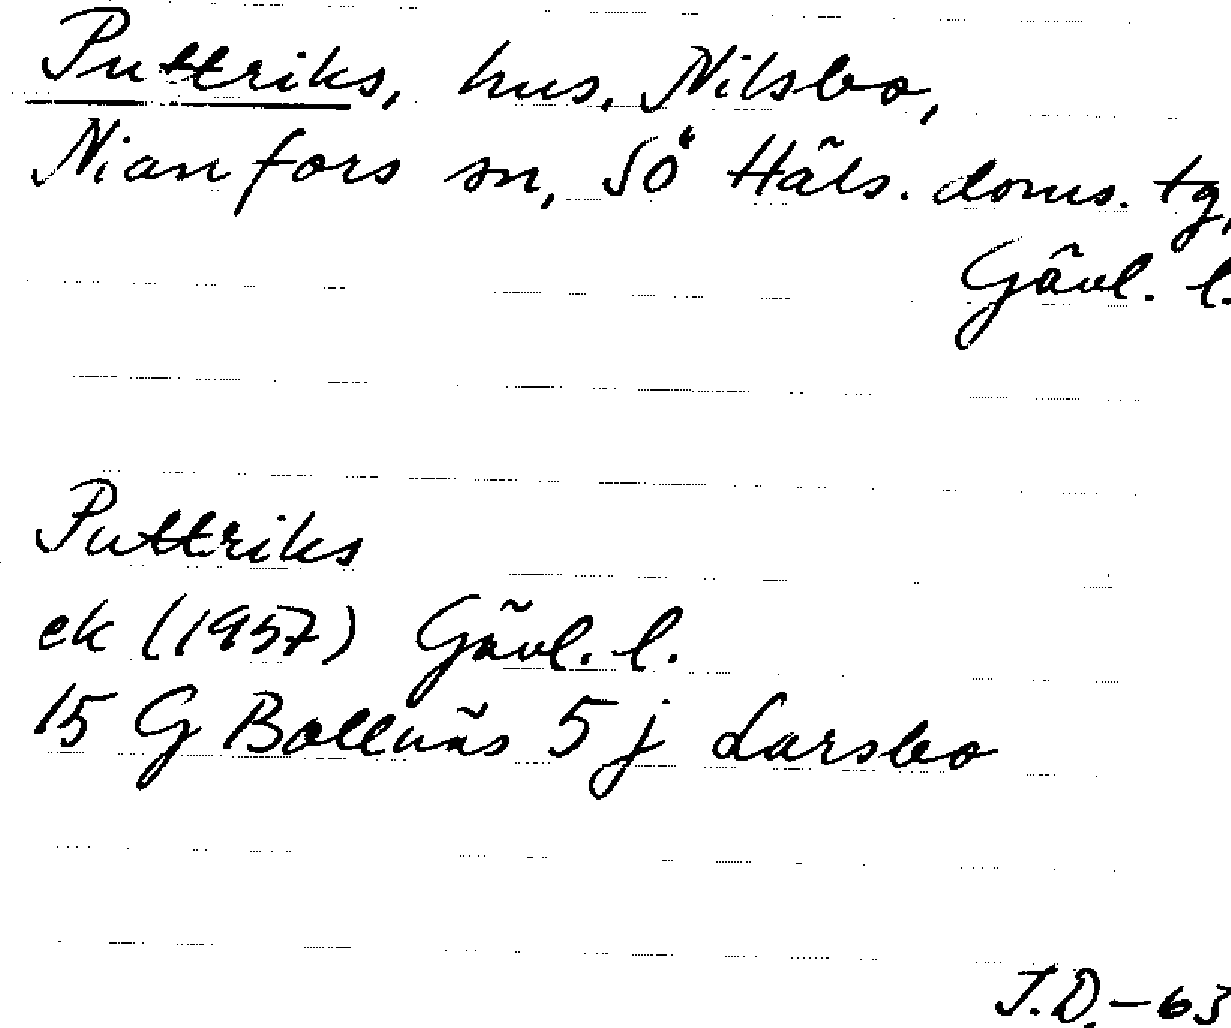 Puttriks, hus, Nilsbo,
Nianfors sn, Sö Häls. doms. tg,
Gävl. l.
Puttriks
ek (1957) Gävl. l.
15 G Bollnäs 5 j Larsbo
J.D.-63